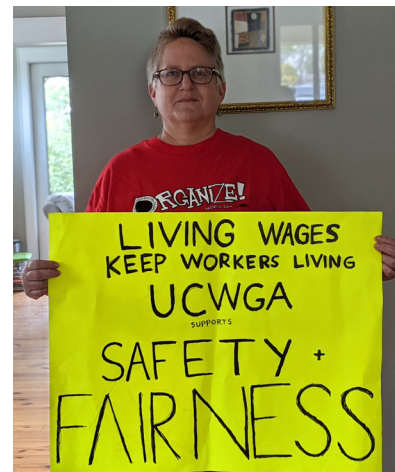 ORGANIZE!
LIVING WAGES
KEEP WORKERS LIVING
UCWGA
SUPPORTS
SAFETY +
FAIRNESS